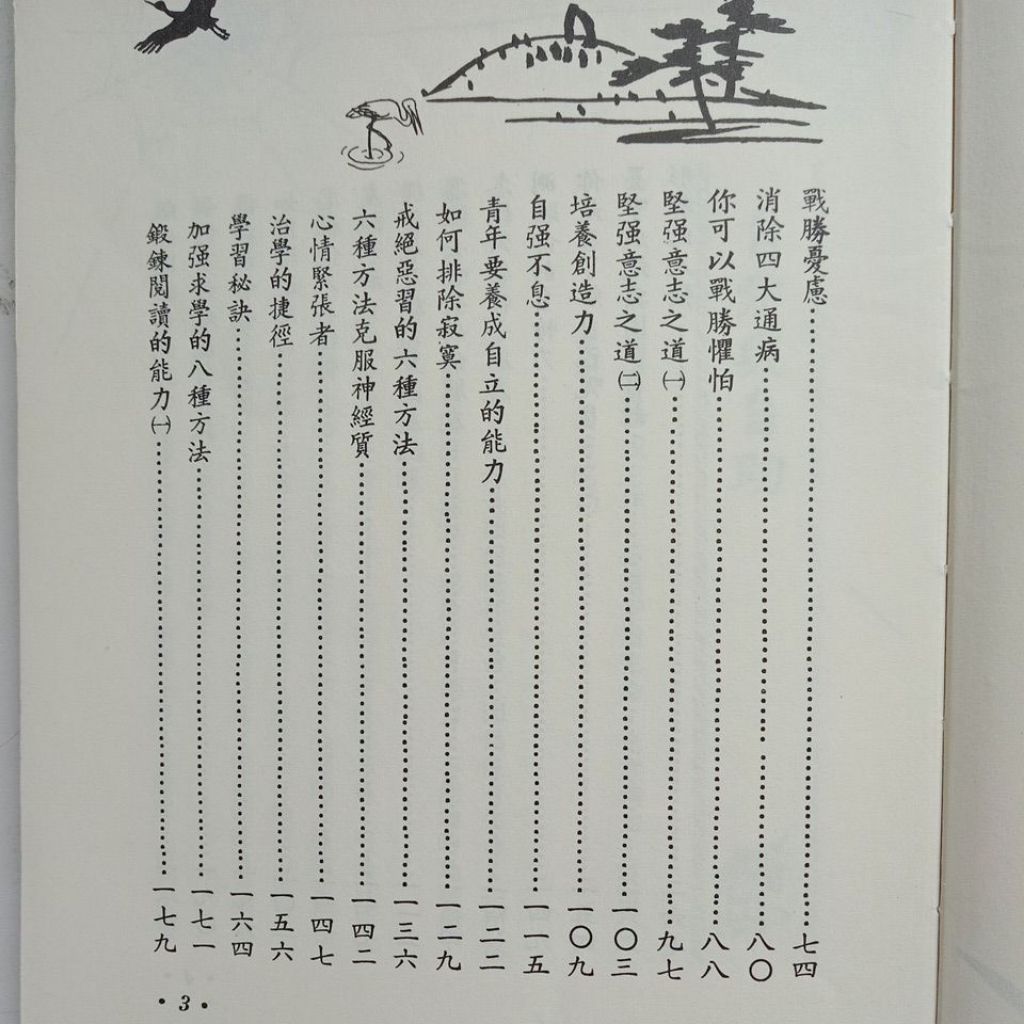 戰勝憂慮……七四
消除四大通病……八〇
你可以戰勝懼怕……八八
堅强意志之道㈠……九七
堅强意志之道㈡……一〇三
培養創造力……一〇九
自强不息……一一五
青年要養成自立的能力……一二二
如何排除寂寞……一二九
戒絕惡習的六種方法……一三六
六種方法克服神經質……一四二
心情緊張者……一四七
治學的捷徑……一五六
學習秘訣……一六四
加强求學的八種方法……一七一
鍛鍊閱讀的能力㈠……一七九
• 3 •